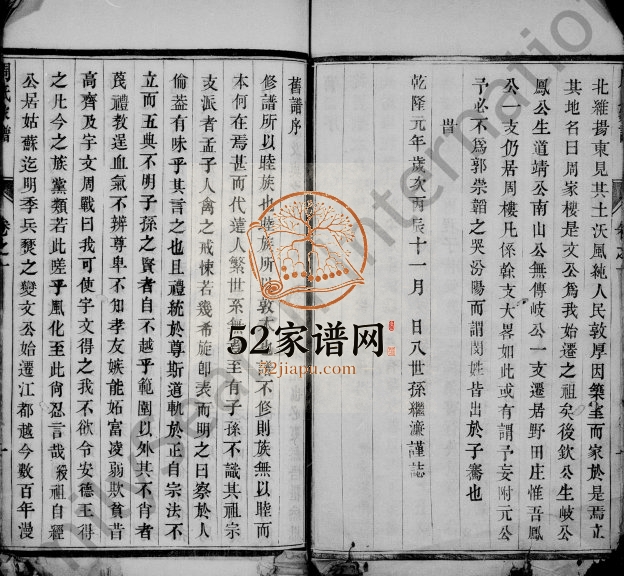 北雅揚東見其土沃風純人民敦厚因築室而家於是焉立
其地名曰周家樓是文公為我始遷之祖矣後欽公生岐公
鳳公生道靖公南山公無傳岐公一支遷居野田庄惟吾鳳
公一支仍居周樓凡係幹支大畧如此或有謂予妄附元公
予必不為郭崇韜之哭汾陽而謂閔姓皆出於子騫也
旹
乾隆元年歲次丙辰十一月 日八世孫繼濂謹誌
舊譜序
修譜所以睦族也 族所 敦 不修則族無以睦而
本何在焉甚而代遠人繁世系無 主有子孫不識其祖宗
支派者孟子人禽之戒悚若幾希旋即表而明之曰察於人
倫葢有味乎其言之也且禮統於尊斯道軌於正自宗法不
立而五典不明子孫之賢者自不越乎範圍以外其不肖者
蔑禮教逞血氣不辨尊卑不知孝友嫉能妬富凌弱欺貧昔
高齊及宇文周戰曰我可使宇文得之我不欲令安德王得
之比今之族黨類若此嗟乎風化至此尚忍言哉 祖自經
公居姑蘇迄明季兵燹之變文公始遷江都越今數百年漫
周氏家譜
卷之一
52家谱网
52jiapu.com